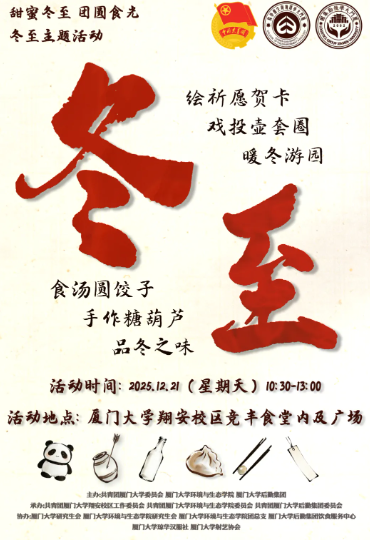 甜蜜冬至 团圆食光
冬至主题活动
绘祈愿贺卡
戏投壶套圈
暖冬游园
冬至
食汤圆饺子
手作糖葫芦
品冬之味
活动时间: 2025.12.21 (星期天) 10:30-13:00
活动地点: 厦门大学翔安校区竞丰食堂内及广场
主办:共青团厦门大学委员会 厦门大学环境与生态学院 厦门大学后勤集团
承办:共青团厦门大学翔安校区工作委员会 共青团厦门大学环境与生态学院委员会 共青团厦门大学后勤集团委员会
协办:厦门大学研究生会 厦门大学环境与生态学院研究生会 厦门大学环境与生态学院团总支 厦门大学后勤集团饮食服务中心
厦门大学琼华汉服社 厦门大学射艺协会